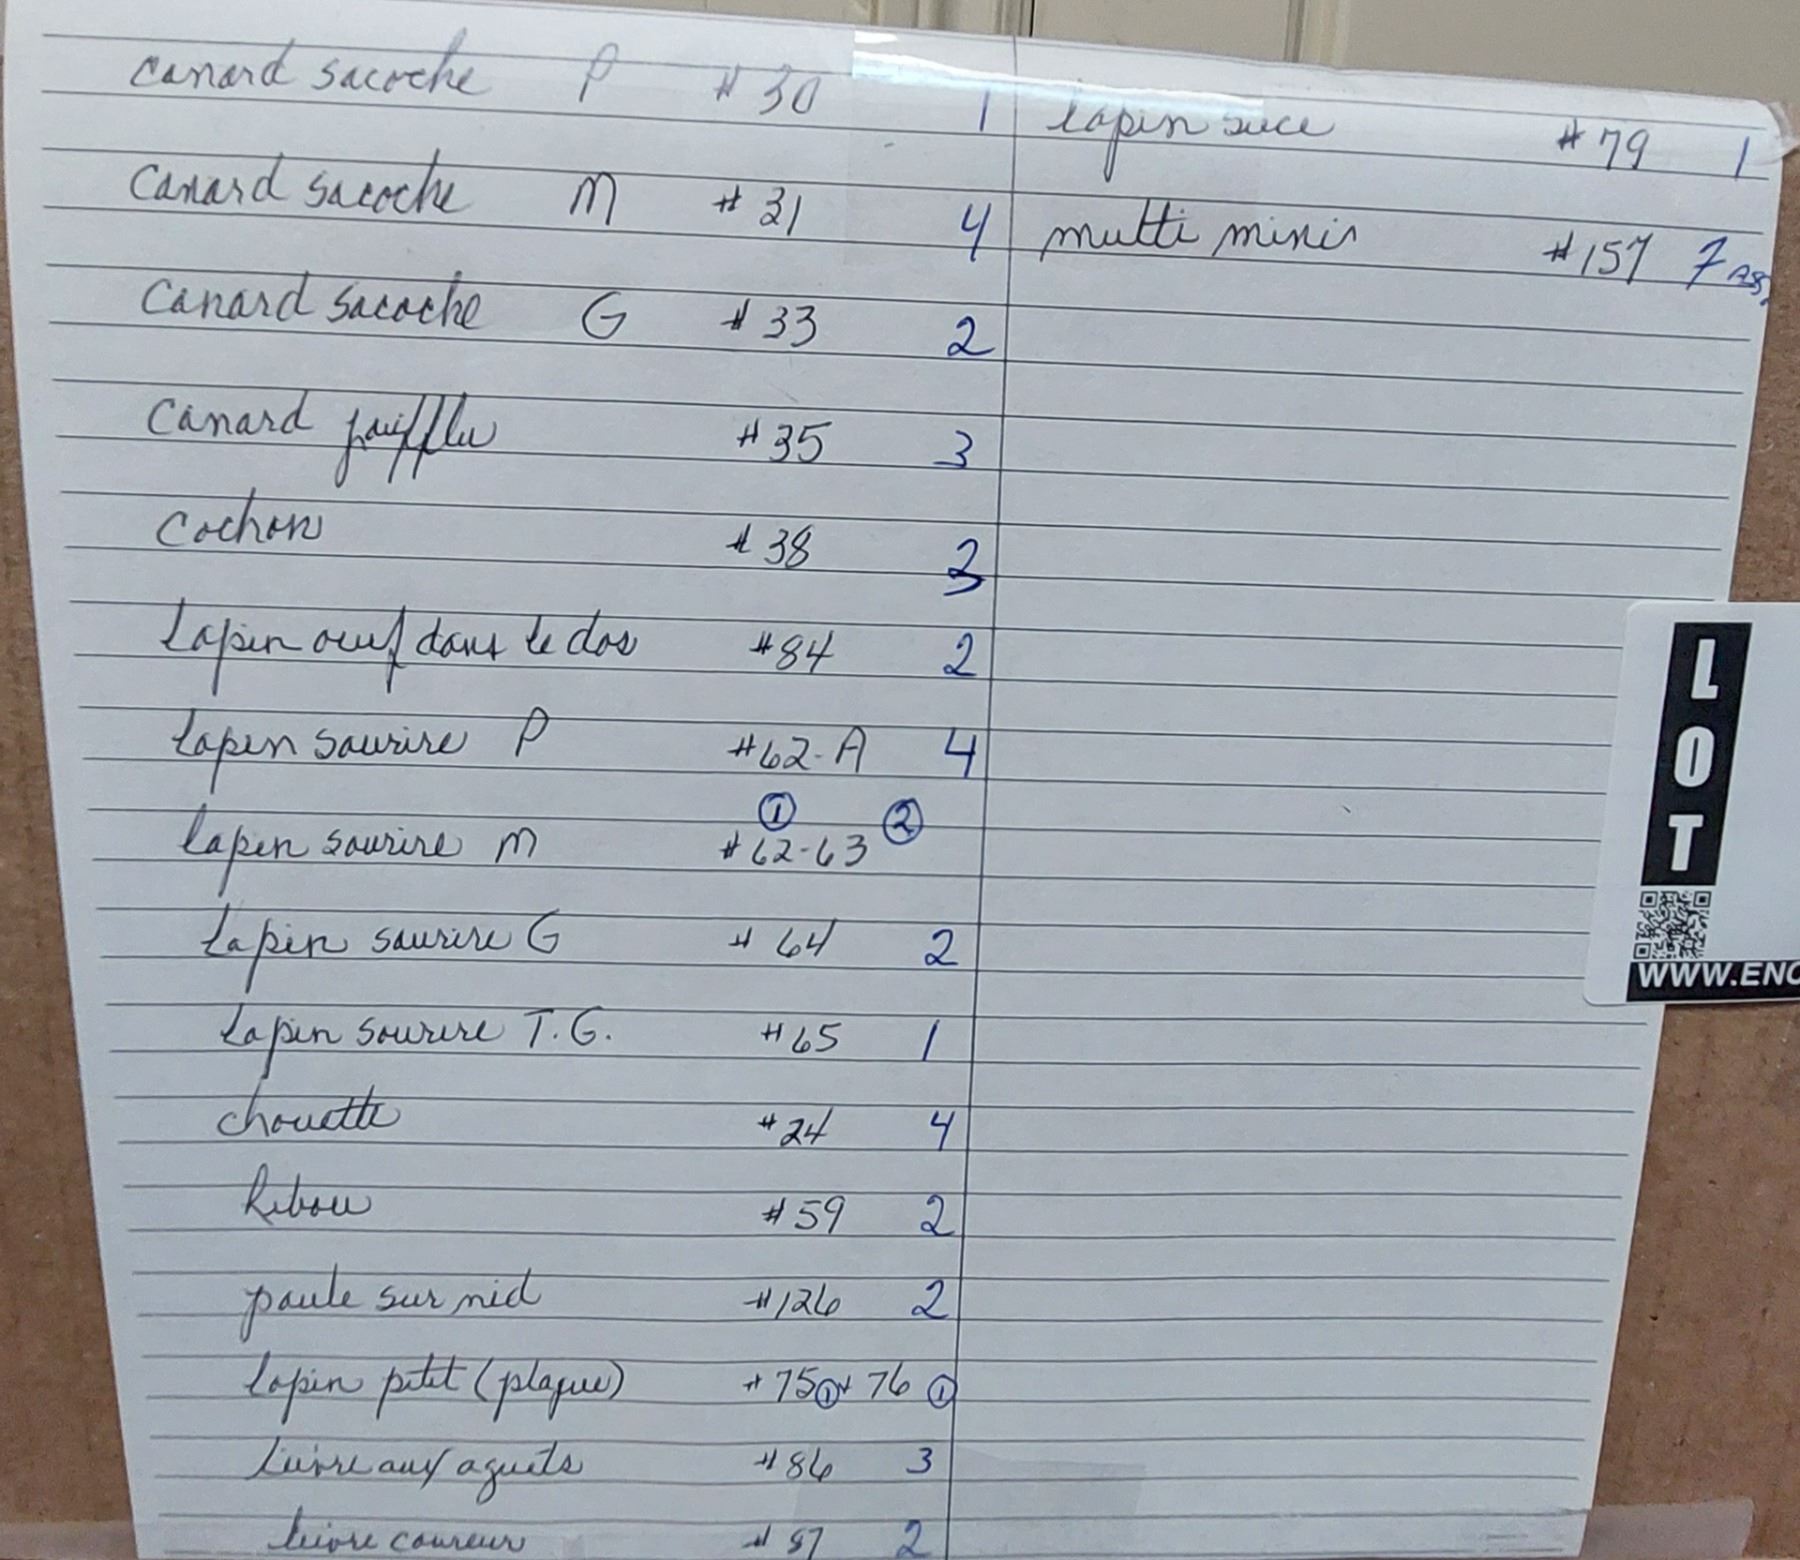 canard sacoche P #30 1
canard sacoche M #31 4
canard sacoche G #33 2
canard joufflu #35 3
cochon #38
lapin oeuf dans le dos #84 2
lapin sourire P #62-A 4
① ②
lapin sourire M #62-63
lapin sourire G #64 2
lapin sourire T.G. #65 1
chouette #24 4
hibou #59 2
poule sur nid #126 2
lapin petit (plaque) #75① 76 ①
lièvre aux aguets #86 3
lièvre coureur #87 2
lapin suce #79 1
multi minis #157 7 ass.
LOT
WWW.ENC